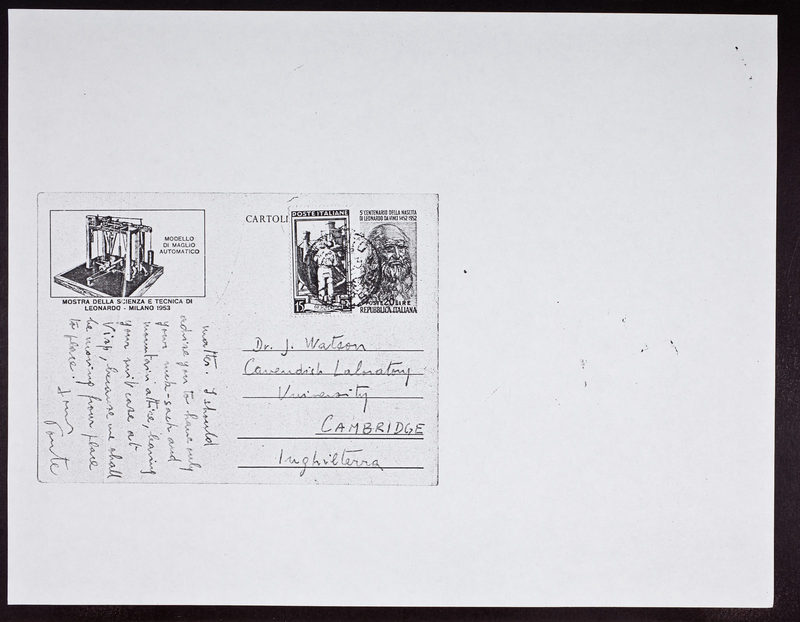 MODELLO
DI MAGLIO
AUTOMATICO
MOSTRA DELLA SCIENZA E TECNICA DI
LEONARDO - MILANO 1953
CARTOLI
POSTE ITALIANE
15
5º CENTENARIO DELLA NASCITA
DI LEONARDO DA VINCI 1452-1952
POSTE 20 LIRE
REPUBBLICA ITALIANA
matter. I should
advise you to have only
your ruck-sack and
mountain attire, leaving
your suit case at
Visp, because we shall
be moving from place
to place.
Yours
Ponte
Dr. J. Watson
Cavendish Laboratory
University
CAMBRIDGE
Inghilterra